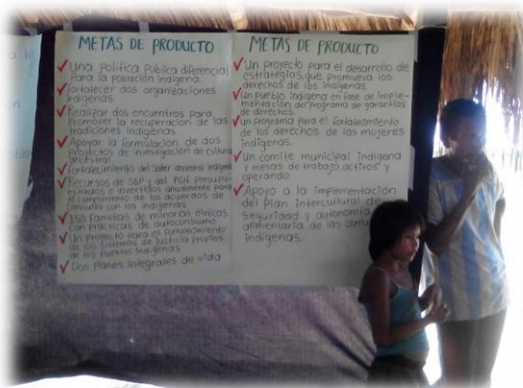 METAS DE PRODUCTO
Una política pública diferencial
para la población indígena
Fortalecer dos organizaciones
indígenas
Realizar dos encuentros para
promover la recuperación de las
tradiciones indígenas
Apoyar la formulación de dos
proyectos de investigación de cultura
ancestral
Fortalecimiento del saber ancestral indígena
Recursos de SGP y del PGN presupu-
estados e invertidos anualmente para
el cumplimiento de los acuerdos de
consulta con los indígenas
150 familias de minorías étnicas
con prácticas de autoconsumo
Un proyecto para el fortalecimiento
de los sistemas de justicia propios
de los pueblos indígenas
Dos planes integrales de vida
METAS DE PRODUCTO
Un proyecto para el desarrollo de
estrategias, que promueva los
derechos de los indígenas.
Un pueblo indígena en fase de imple-
mentación del programa de garantías
de derechos.
Un programa para el fortalecimiento
de los derechos de las mujeres
indígenas.
Un comite municipal indígena
y mesas de trabajo activos y
operando.
Apoyo a la implementación
del Plan Intercultural de
Seguridad y autonomía
alimentaria de las
indígenas.